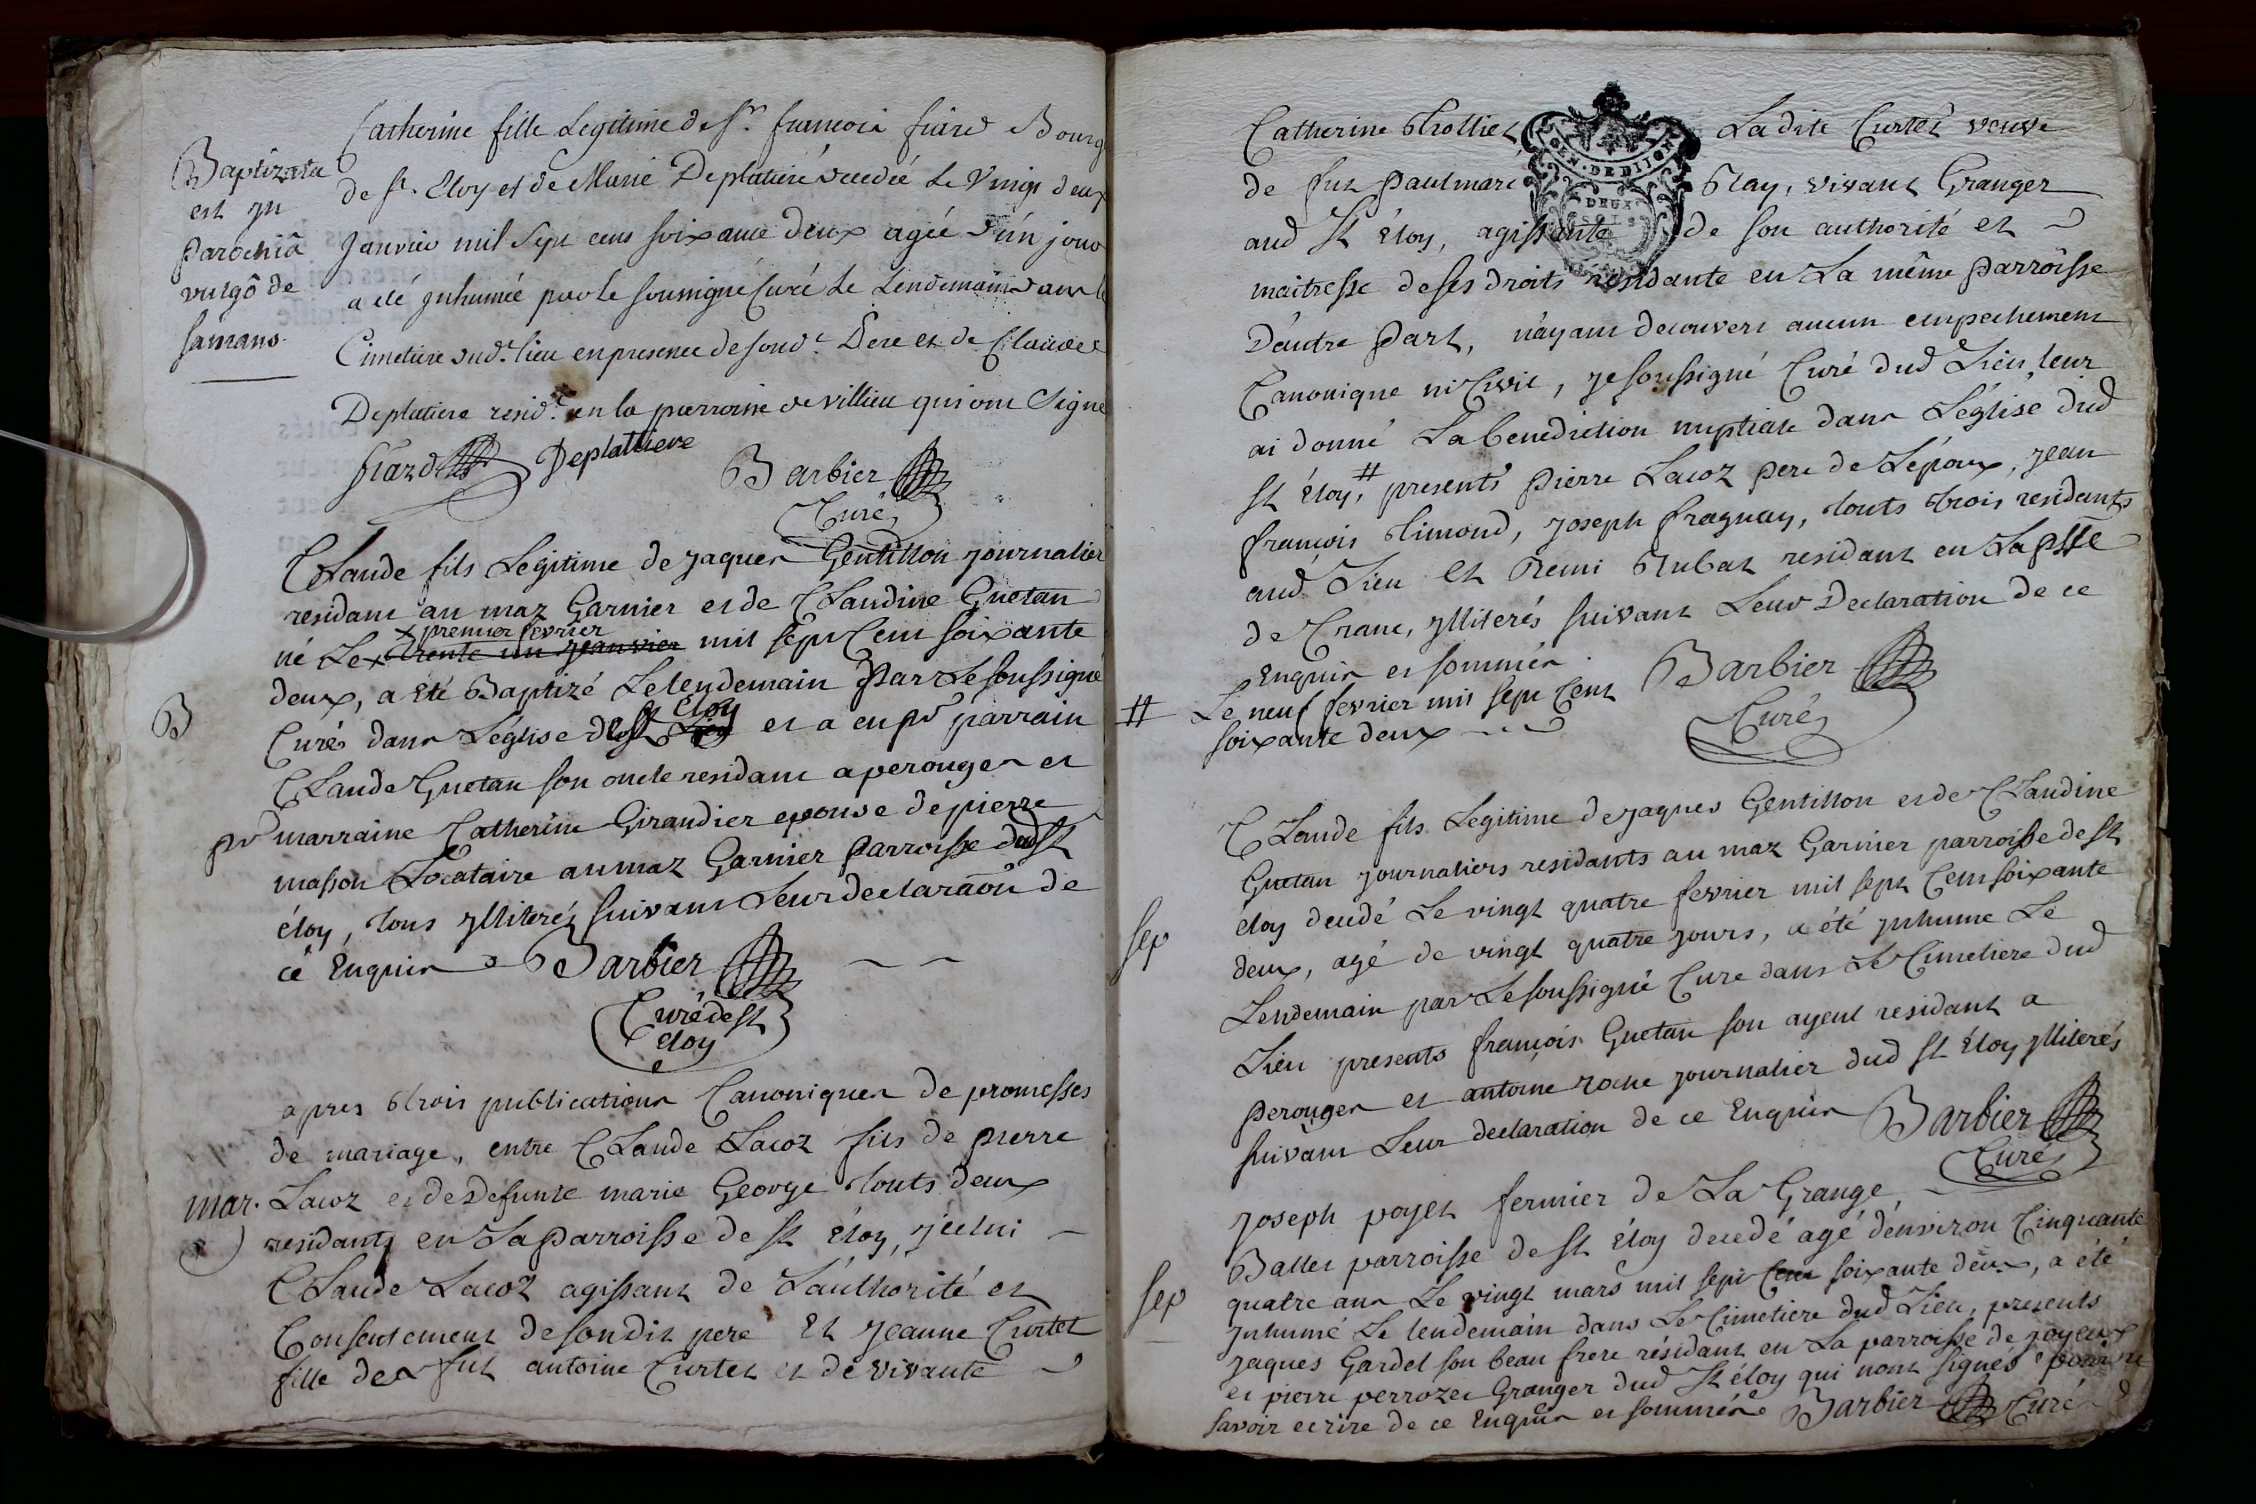 Catherine fille Legitime de Sr. francois fiard Bourg
Baptizata
est in
parochiâ
vulgô de
samans
de St. Eloy et de Marie Deplatiere decedée le Vingt deux
Janvier mil Sept cens soixante deux agée d'un jour
a eté inhumée par le soussigné Curé le Lendemain dans le
Cimetiere dud. lieu en presence de sond. Pere et de Claude
Deplatiere resid.t en la parroisse de villieu qui ont Signé
fiard Deplattiere Barbier
Curé
Claude fils Legitime de jaques Gentillon journalier
residant au maz Garnier et de Claudine Guetan
x premier fevrier
né Le x trente un Janvier mil sept Cent soixante
deux, a été Baptizé Le lendemain Par Le soussigné
B
Curé dans L'église de St Eloy et a eu pr parrain
Claude Guetan son oncle residant a perouges et
pr marraine Catherine Girandier epouse de pierre
masson Locataire au maz Garnier parroisse dud St
éloy, tous jlliterés suivant Leur declaraõn de
ce Enquis Barbier
Curé de St
eloy
apres trois publications Canoniques de promesses
de mariage, entre Claude Lacoz fils de pierre
mar. Lacoz et de defunte marie George touts deux
residants en La parroisse de St éloy, jcelui
Claude Lacoz agissant de L'authorité et
Consentement de son dit pere Et jeanne Curtet
fille de fut antoine Curtet et de vivante
Catherine trollier La dite Curtet veuve
GEN. DE DIJON
DEUX
SOLS
de fut paul marc Blay, vivant Granger
aud St éloy, agissante de son authorité et
maitresse de ses droits residante en La même parroisse
D'autre part, n'ayant decouvert aucun empechement
Canonique ni Civil, je soussigné Curé dud Lieu leur
ai donné La benediction nuptiale dans L'église dud
St éloy, # presents pierre Lacoz pere de L'époux, jean
françois timond, joseph fragnay, touts trois residants
aud Lieu et Remi Aubat residant en La psse
de Crane, jlliterés suivant Leur Declaration de ce
Enquis et sommés Barbier
Curé
# Le neuf fevrier mil sept Cent
soixante deux
Claude fils Legitime de jaques Gentillon et de Claudine
Guetan journaliers residants au maz Garnier parroisse de St
éloy decedé Le vingt quatre fevrier mil sept Cent soixante
sep
deux, agé de vingt quatre jours, a été jnhumé Le
Lendemain par Le soussigné Curé dans Le Cimetiere dud
Lieu presents françois Guetan son ayeul residant a
perouges et antoine roche journalier dud St éloy jlliterés
suivant Leur declaration de ce Enquis Barbier
Curé
joseph poyet fermier de La Grange
Ballet parroisse de St éloy decedé agé d'environ Cinquante
sep
quatre ans Le vingt mars mil sept Cent soixante deux, a été
jnhumé Le lendemain dans Le Cimetiere dud Lieu, presents
jaques Gardel son beau frere résidant en La parroisse de joyeux
et pierre perrozet Granger dud St éloy qui n'ont signés pour ne
savoir ecrire de ce Enquis et sommés Barbier Curé